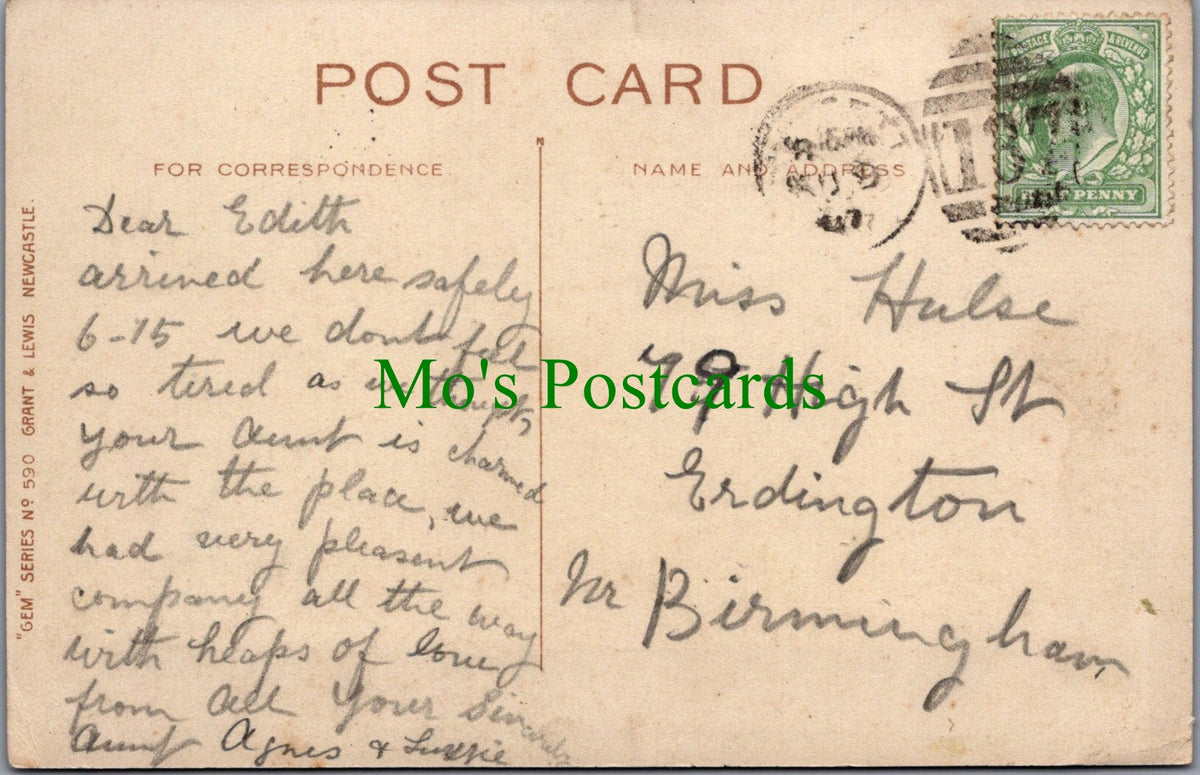 POST CARD
FOR CORRESPONDENCE
NAME AND ADDRESS
POSTAGE & REVENUE
HALF PENNY
137
Dear Edith
arrived here safely
6-15 we dont feel
so tired as we thought,
your Aunt is charmed
with the place, we
had very pleasent
company all the way
with heaps of love
from all Your Sincerely
Aunt Agnes &
Miss Hulse
79 High St
Erdington
Nr Birmingham
Mo's Postcards
"GEM" SERIES Nº 590 GRANT & LEWIS NEWCASTLE.